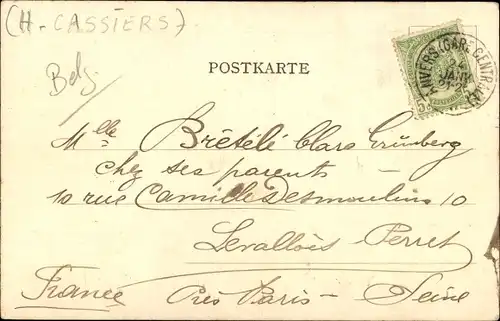 (H. CASSIERS)
Belg
POSTKARTE
ANVERS (GARE CENTRALE)
24
JANV
5
Mlle Brételé Clars Grünberg
chez ses parent -
10 rue Camille Desmoulins 10
Levallois - Perret
France Près Paris - Seine